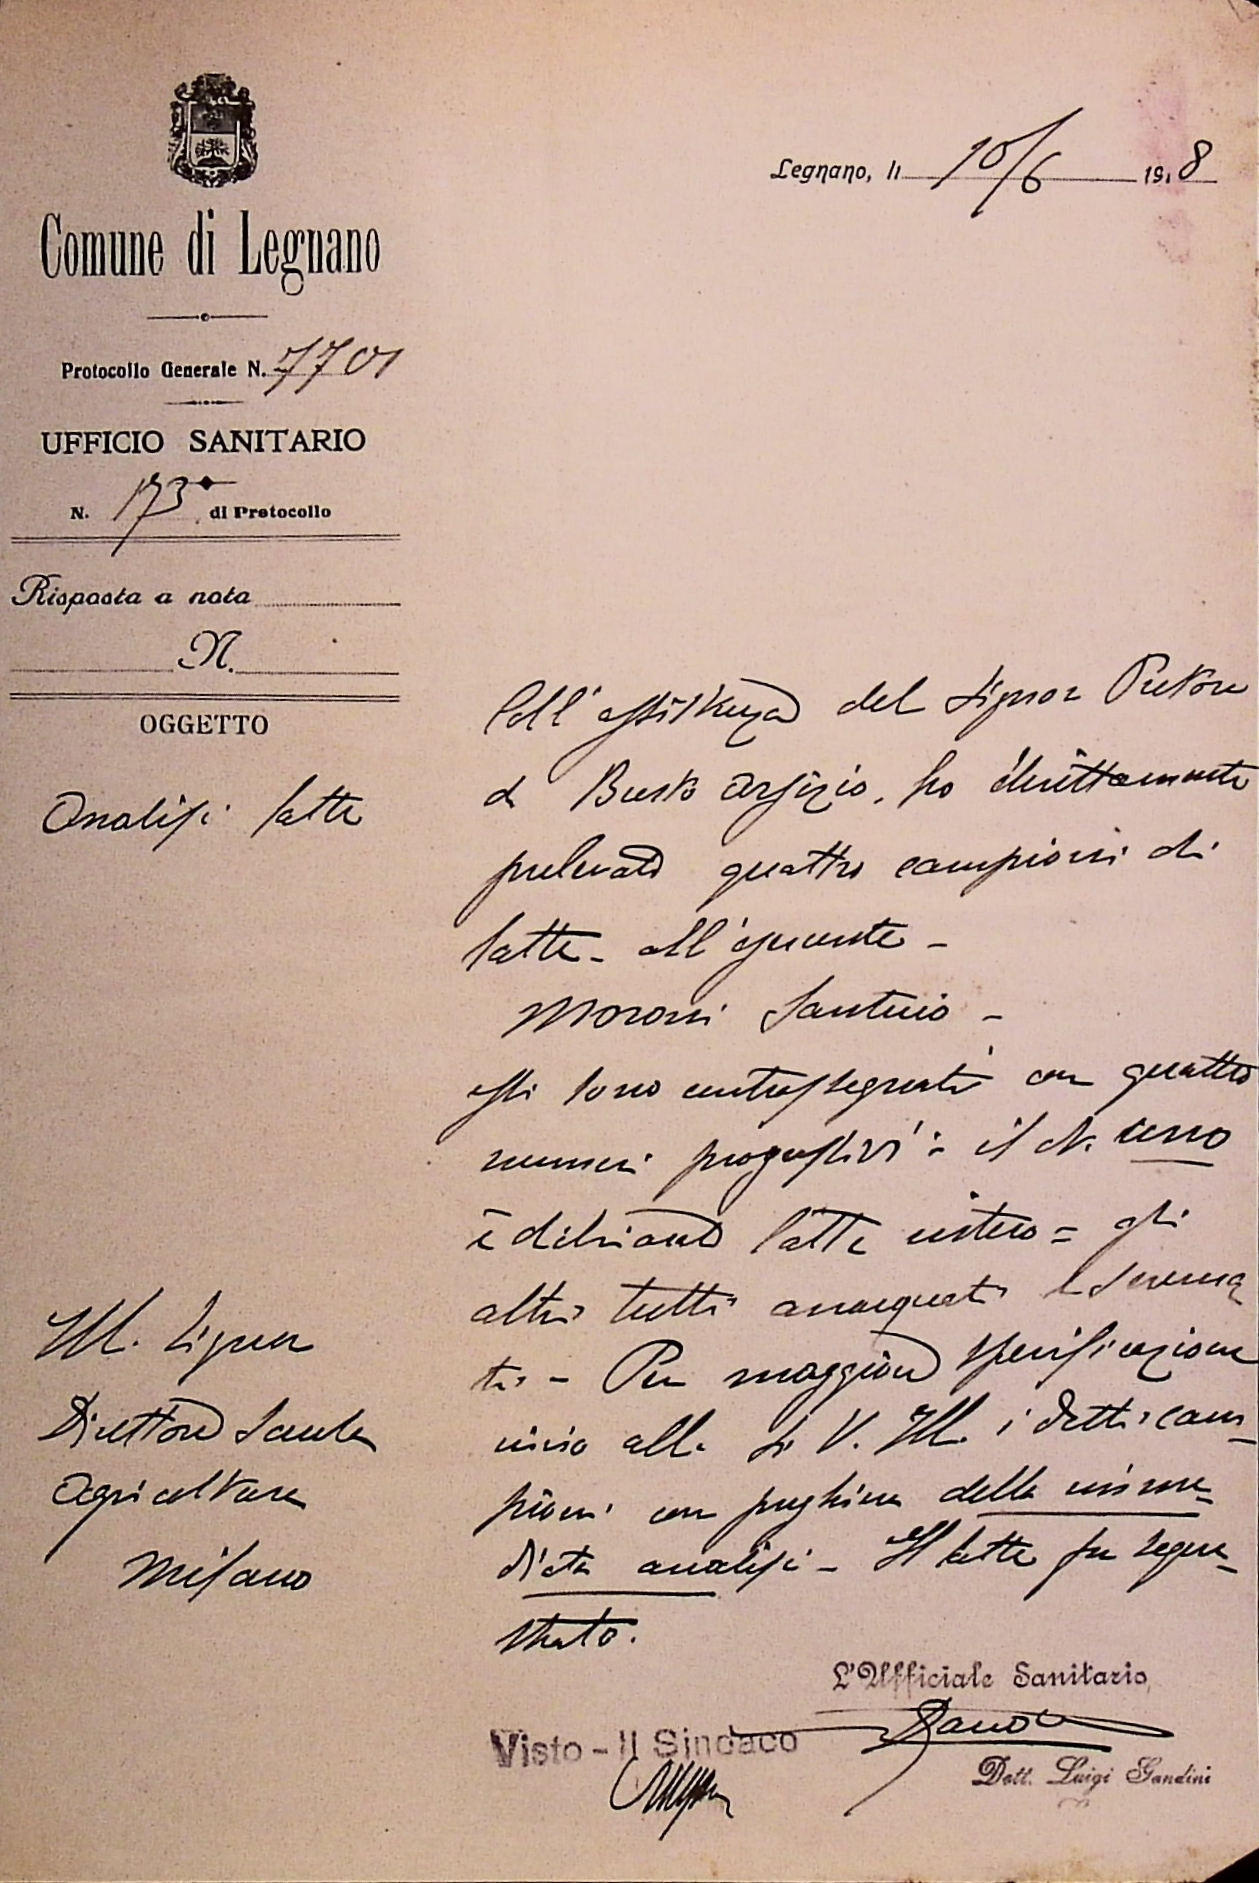 Legnano, li 10/6 1918
Comune di Legnano
Protocollo Generale N. 7701
UFFICIO SANITARIO
N. 173 di Protocollo
Risposta a nota
N.
OGGETTO
Analisi latte
Coll'assistenza del Signor Pretore
di Busto Arsizio, ho direttamente
prelevato quattro campioni di
latte - all'esercente -
Moroni Santino -
essi sono contrassegnati con quattro
numeri progressivi: il N. uno
è dichiarato latte intero = gli
altri tutti annacquati e screma
ti - Per maggiore
invio alla S. V. Ill. i detti cam-
pioni con preghiera della imme-
diata analisi - Il latte fu seque-
strato.
Ill. Signor
Direttore Scuola
Agricoltura
Milano
L'Ufficiale Sanitario
Visto - Il Sindaco
Dott. Luigi Gandini